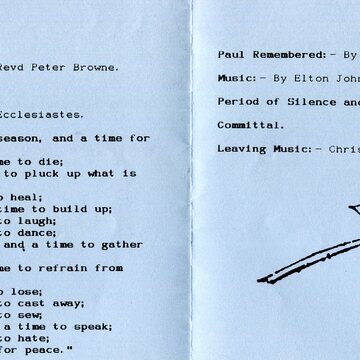 Revd Peter Browne.
Ecclesiastes.
season, and a time for
me to die;
to pluck up what is
o heal;
time to build up;
to laugh;
to dance;
and a time to gather
me to refrain from
o lose;
to cast away;
to sew;
a time to speak;
to hate;
for peace."
Paul Remembered:- By
Music:- By Elton John
Period of Silence and
Committal.
Leaving Music:- Chris